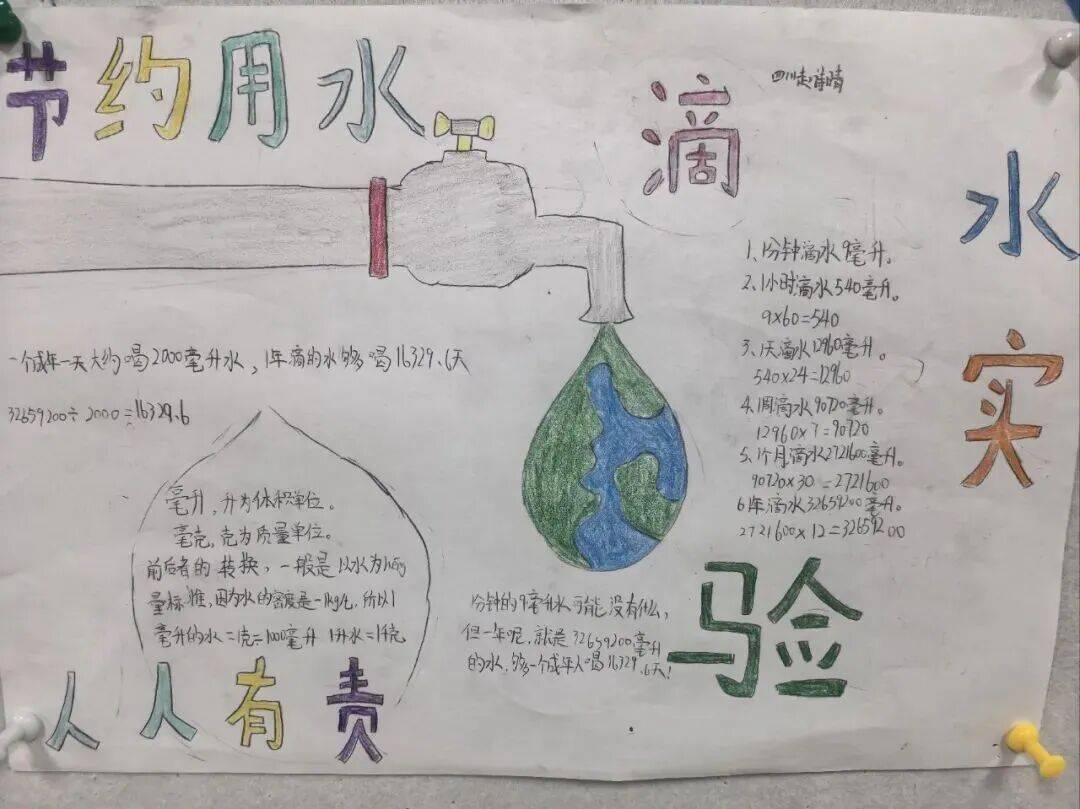 节约用水
滴
水
实
验
1、1分钟滴水9毫升。
2、1小时滴水540毫升。
9×60=540
3、1天滴水12960毫升。
540×24=12960
4、1周滴水90720毫升。
12960×7=90720
5、1个月滴水2721600毫升。
90720×30=2721600
6年滴水32659200毫升。
2721600×12=32659200
一个成年一天大约喝2000毫升水,1年滴的水够多喝16329.6天
32659200÷2000=16329.6
毫升,升为体积单位。
毫克,克为质量单位。
前后者的转换,一般是以水为
量标准,因为水的密度是一1kg/L,所以1
毫升的水=1克=100毫升 1升水=1千克
1分钟的9毫升水可能没有什么,
但一年呢,就是32659200毫升
的水,够多一个成年人喝16329.6天!
人人有责